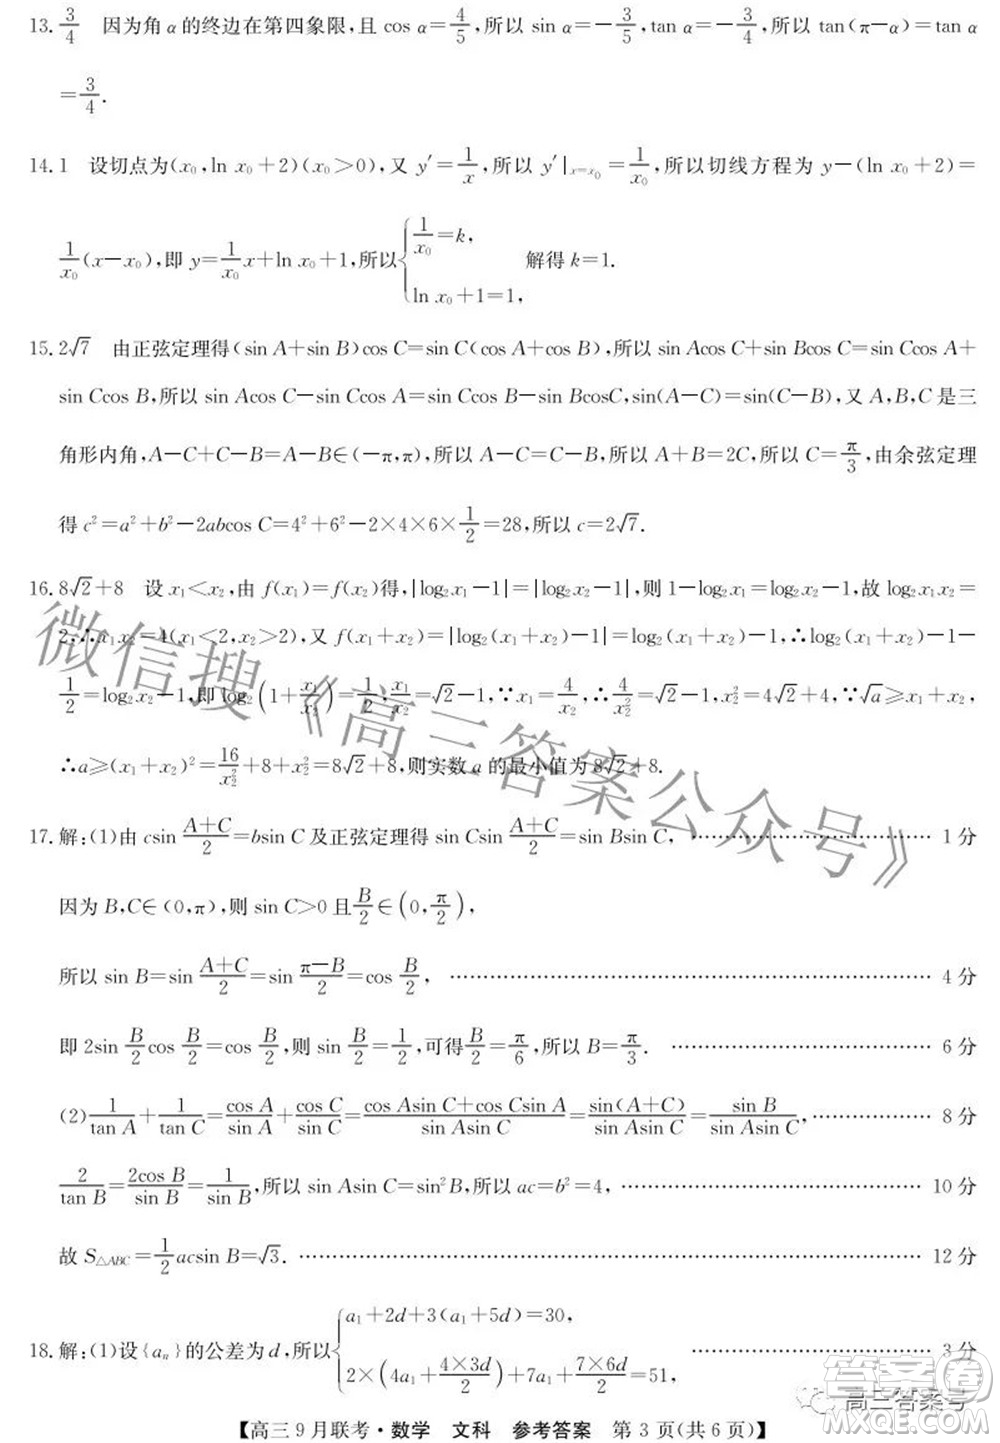 13. 3/4　因为角 α 的终边在第四象限,且 cos α=4/5,所以 sin α=−3/5,tan α=−3/4,所以 tan(π−α)=tan α
=3/4.
14. 1　设切点为(x₀,ln x₀+2)(x₀>0),又 y′=1/x,所以 y′|ₓ₌ₓ₀=1/x₀,所以切线方程为 y−(ln x₀+2)=
1/x₀(x−x₀),即 y=1/x₀x+ln x₀+1,所以{1/x₀=k, ln x₀+1=1, 解得 k=1.
15. 2√7　由正弦定理得(sin A+sin B)cos C=sin C(cos A+cos B),所以 sin Acos C+sin Bcos C=sin Ccos A+
sin Ccos B,所以 sin Acos C−sin Ccos A=sin Ccos B−sin BcosC,sin(A−C)=sin(C−B),又 A,B,C 是三
角形内角,A−C+C−B=A−B∈(−π,π),所以 A−C=C−B,所以 A+B=2C,所以 C=π/3,由余弦定理
得 c²=a²+b²−2abcos C=4²+6²−2×4×6×1/2=28,所以 c=2√7.
16. 8√2+8　设 x₁<x₂,由 f(x₁)=f(x₂)得,|log₂x₁−1|=|log₂x₂−1|,则 1−log₂x₁=log₂x₂−1,故 log₂x₁x₂=
2,∴x₁x₂=4(x₁<2,x₂>2),又 f(x₁+x₂)=|log₂(x₁+x₂)−1|=log₂(x₁+x₂)−1,∴log₂(x₁+x₂)−1−
1/2=log₂x₂−1,即 log₂(1+x₁/x₂)=1/2,x₁/x₂=√2−1,∵x₁=4/x₂,∴4/x₂²=√2−1,x₂²=4√2+4,∵√a≥x₁+x₂,
∴a≥(x₁+x₂)²=16/x₂²+8+x₂²=8√2+8,则实数 a 的最小值为 8√2+8.
17. 解:(1)由 csin (A+C)/2=bsin C 及正弦定理得 sin Csin (A+C)/2=sin Bsin C, ………… 1 分
因为 B,C∈(0,π),则 sin C>0 且 B/2∈(0,π/2),
所以 sin B=sin (A+C)/2=sin (π−B)/2=cos B/2, ………… 4 分
即 2sin B/2 cos B/2=cos B/2,则 sin B/2=1/2,可得 B/2=π/6,所以 B=π/3. ………… 6 分
(2)1/tan A+1/tan C=cos A/sin A+cos C/sin C=(cos Asin C+cos Csin A)/(sin Asin C)=sin(A+C)/(sin Asin C)=sin B/(sin Asin C), ………… 8 分
2/tan B=2cos B/sin B=1/sin B,所以 sin Asin C=sin²B,所以 ac=b²=4, ………… 10 分
故 S△ABC=1/2acsin B=√3. ………… 12 分
18. 解:(1)设{aₙ}的公差为 d,所以{a₁+2d+3(a₁+5d)=30, 2×(4a₁+4×3d/2)+7a₁+7×6d/2=51, ………… 3 分
【高三9月联考·数学　文科　参考答案　第 3 页(共 6 页)】
微信搜《高三答案公众号》
高三答案号
答案圈
MXQE.COM